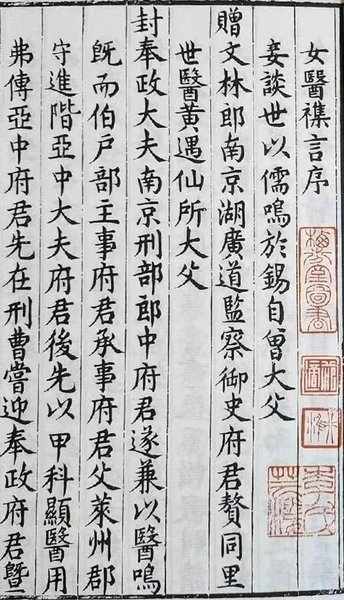 女醫襍言序
妾談世以儒鳴於錫自曾大父
贈文林郎南京湖廣道監察御史府君贅同里
世醫黃遇仙所大父
封奉政大夫南京刑部郎中府君遂兼以醫鳴
旣而伯戶部主事府君承事府君父萊州郡
守進階亞中大夫府君後先以甲科顯醫用
弗傳亞中府君先在刑曹嘗迎奉政府君曁